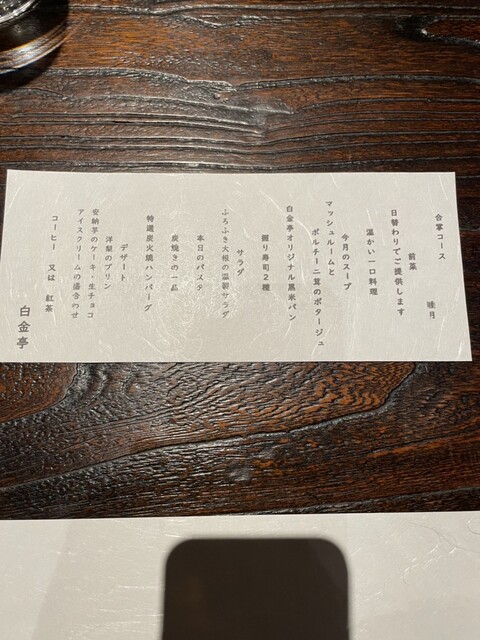 合掌コース
睦月
前菜
日替わりでご提供します
温かい一口料理
今月のスープ
マッシュルームと
ポルチーニ茸のポタージュ
白金亭オリジナル黒米パン
握り寿司2種
サラダ
ふろふき大根の温若サラダ
本日のパスタ
炭焼きの一品
特選炭火焼ハンバーグ
デザート
洋梨のプリン
安納芋のケーキ・生チョコ
アイスクリームの盛合わせ
コーヒー 又は 紅茶
白金亭